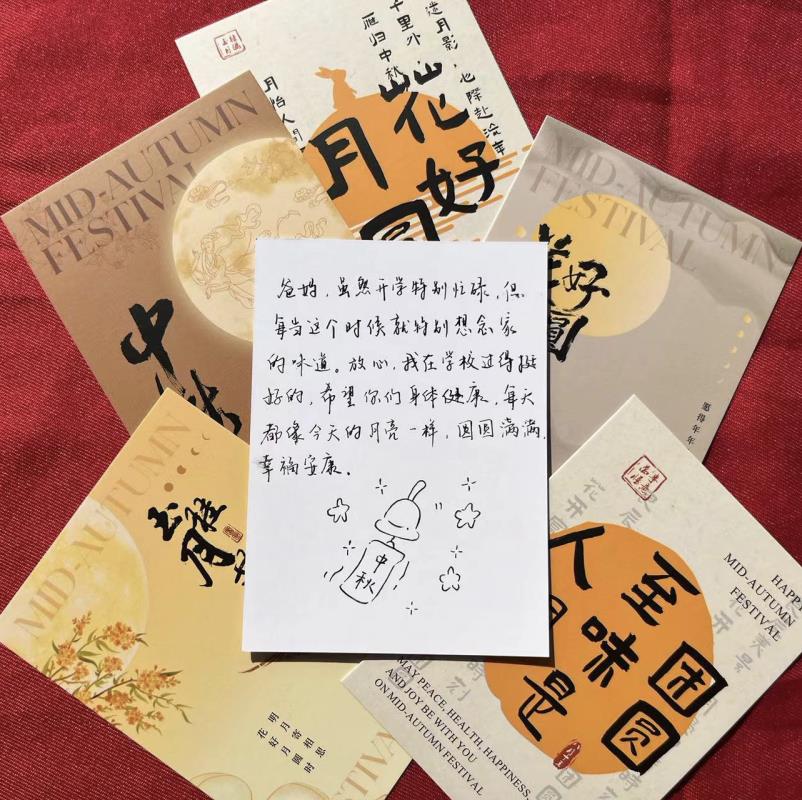 爸妈，虽然开学特别忙碌，但
每当这个时候就特别想念家
的味道。放心，我在学校过得挺
好的，希望你们身体健康，每天
都像今天的月亮一样，圆圆满满，
幸福安康。
中秋
月圆
花好
十里外，
雁归中秋
MID-AUTUMN
FESTIVAL
中秋
MID-AUTUMN
FESTIVAL
好
圆
愿得年年
MID-AUTUMN
明月寄相思
花好月圆时
HAPPY
MID-AUTUMN
FESTIVAL
至味是
团圆
人
MAY PEACE, HEALTH, HAPPINESS,
AND JOY BE WITH YOU
ON MID-AUTUMN FESTIVAL